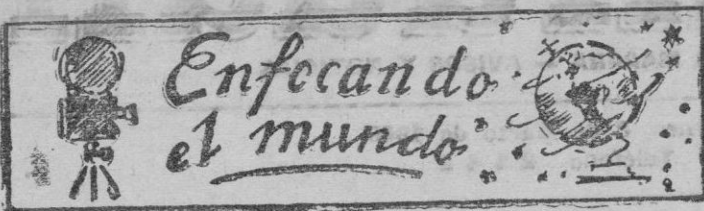 Enfocando
el mundo